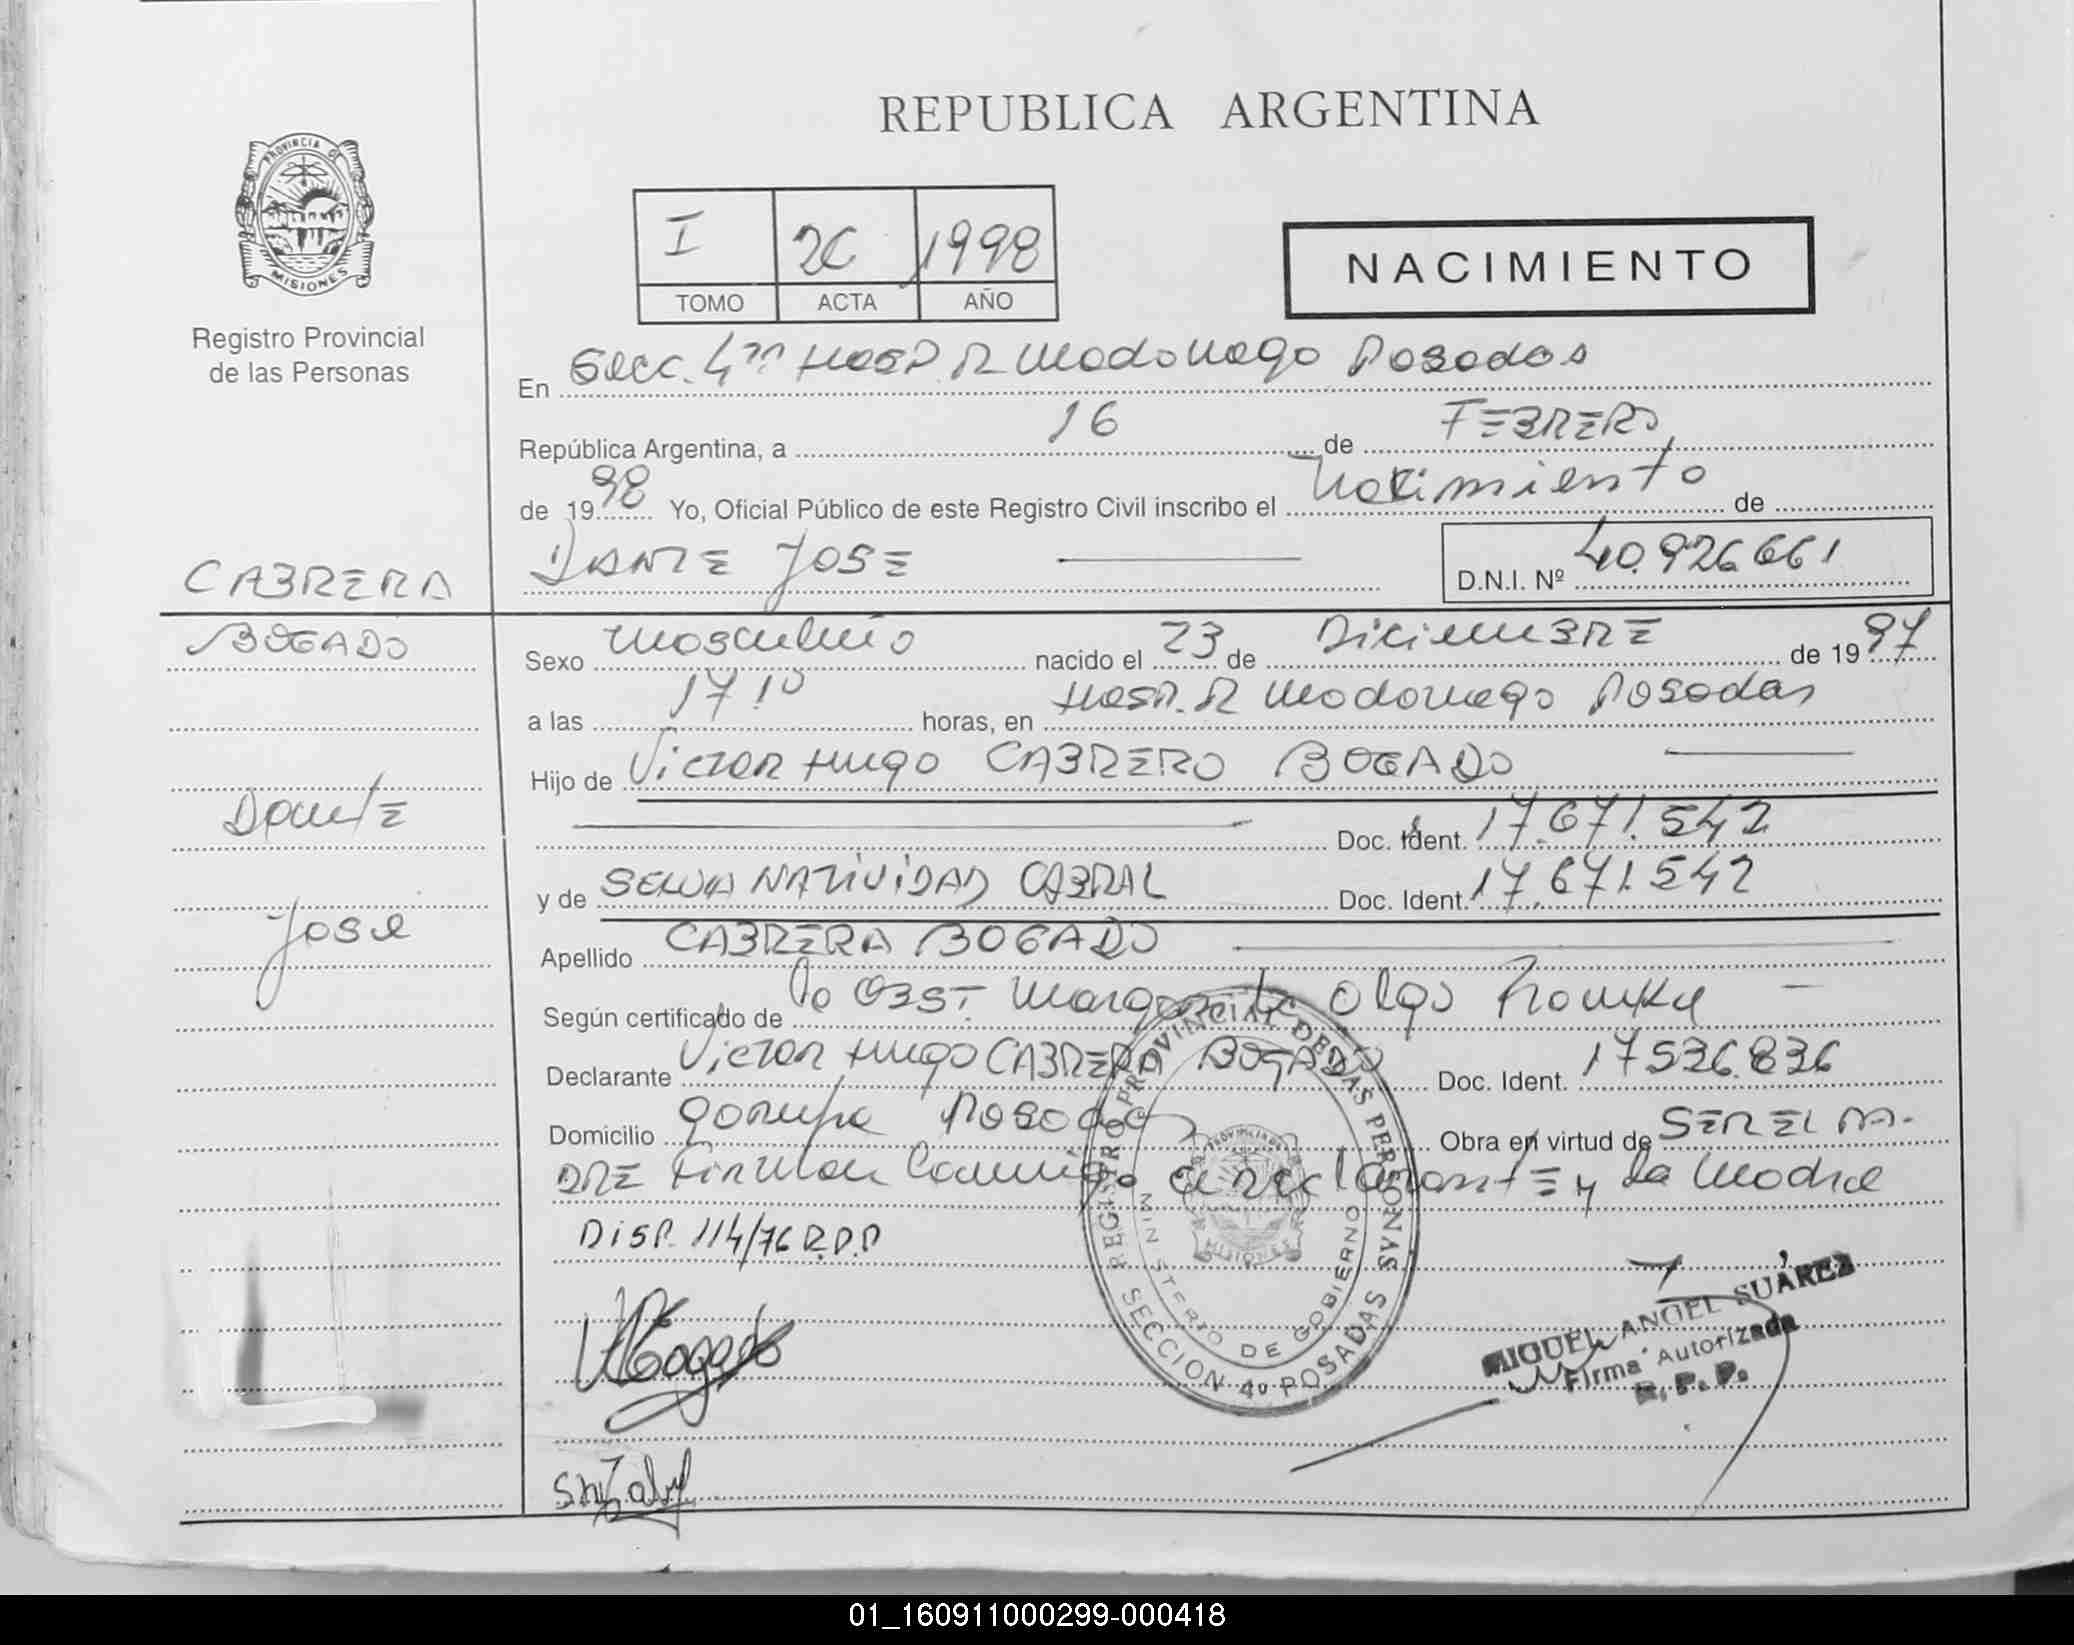 REPUBLICA ARGENTINA
PROVINCIA DE
MISIONES
Registro Provincial
de las Personas
I 1998
TOMO ACTA AÑO
NACIMIENTO
En Secc. 4ta Hosp. R Madariaga Posadas
República Argentina, a 16 de FEBRERO
de 1998 Yo, Oficial Público de este Registro Civil inscribo el Nacimiento de
DANTE JOSE
D.N.I. Nº 40.926.661
CABRERA
BOGADO
Dante
Jose
Sexo masculino nacido el 23 de DiciemBRE de 1997
a las 17 10 horas, en Hosp. R Madariaga Posadas
Hijo de Victor Hugo CABRERO BOGADO
Doc. Ident. 17.671.542
y de SELVA NATIVIDAD CABRAL Doc. Ident. 17.671.542
Apellido CABRERA BOGADO
Según certificado de la OBST. Margarita Olga
Declarante Victor Hugo CABRERA BOGADO Doc. Ident. 17536.836
Domicilio Garupa Posadas Obra en virtud de SER EL PA-
DRE Firman Conmigo el declarantE y la Madre
DISP. 114/76 R.P.P
REGISTRO PROVINCIAL DE LAS PERSONAS
MINISTERIO DE GOBIERNO
SECCION 4º POSADAS
PROVINCIA DE
MISIONES
MIGUEL ANGEL SUÁREZ
Firma Autorizada
R. P. P.
01_160911000299-000418